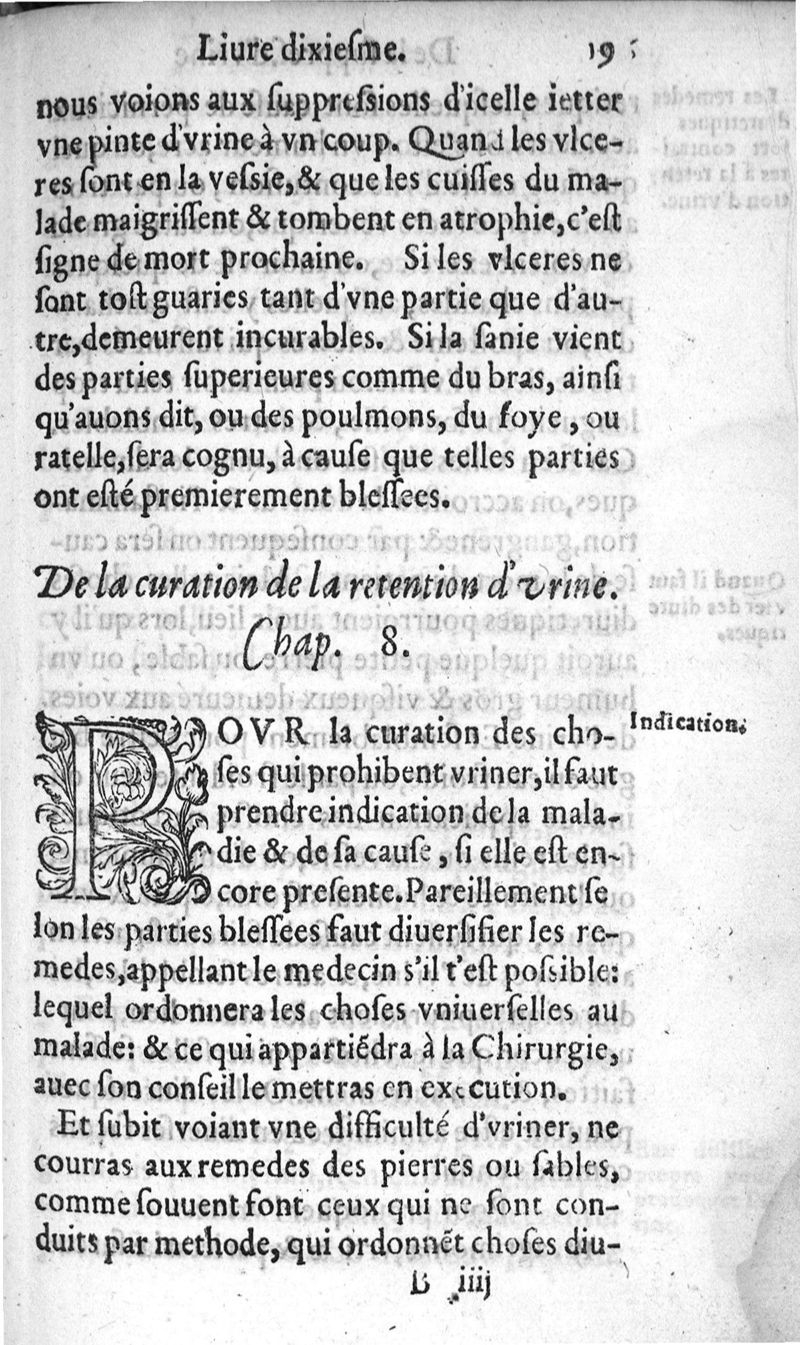 Liure dixiesme. 19
nous voions aux ſuppreſsions d'icelle ietter
vne pinte d'vrine à vn coup. Quand les vlce-
res ſont en la veſsie, & que les cuiſſes du ma-
lade maigriſſent & tombent en atrophie, c'eſt
ſigne de mort prochaine. Si les vlceres ne
ſont toſt guaries tant d'vne partie que d'au-
tre, demeurent incurables. Si la ſanie vient
des parties ſuperieures comme du bras, ainſi
qu'auons dit, ou des poulmons, du foye, ou
ratelle, ſera cognu, à cauſe que telles parties
ont eſté premierement bleſſees.
De la curation de la retention d'vrine.
Chap. 8.
POVR la curation des cho-
Indication.
ſes qui prohibent vriner, il faut
prendre indication de la mala-
die & de ſa cauſe, ſi elle eſt en-
core preſente. Pareillement ſe
lon les parties bleſſees faut diuerſifier les re-
medes, appellant le medecin s'il t'eſt poſsible:
lequel ordonnera les choſes vniuerſelles au
malade: & ce qui appartiẽdra à la Chirurgie,
auec ſon conſeil le mettras en execution.
Et ſubit voiant vne difficulté d'vriner, ne
courras aux remedes des pierres ou ſables,
comme ſouuent font ceux qui ne ſont con-
duits par methode, qui ordonnẽt choſes diu-
B iiij